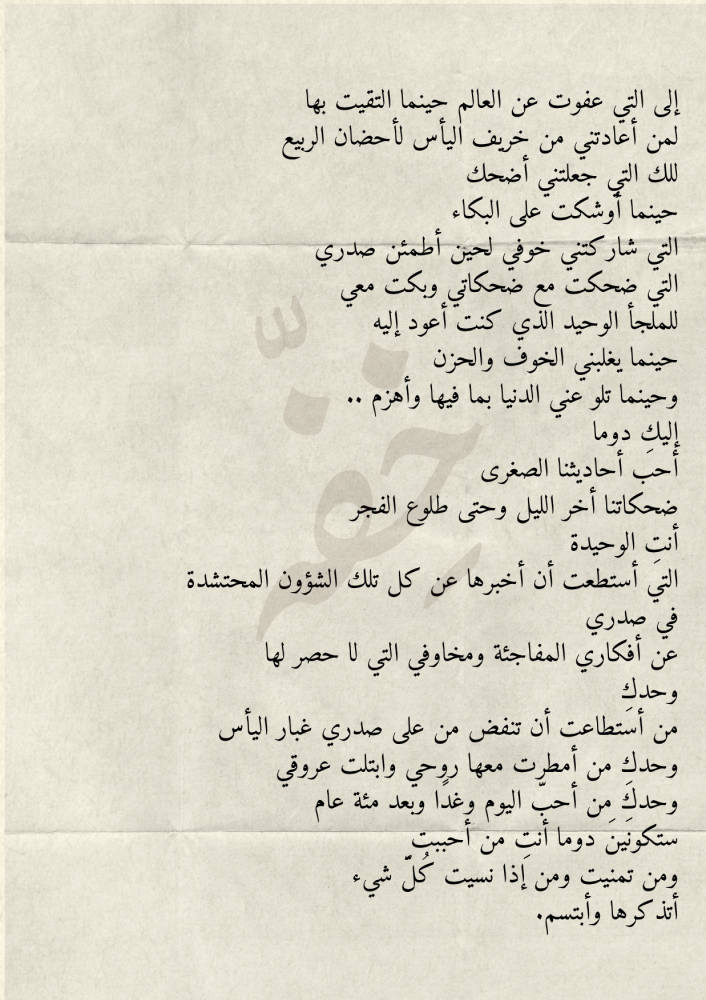 إلى التي عفوت عن العالم حينما التقيت بها
لمن أعادتني من خريف اليأس لأحضان الربيع
للك التي جعلتني أضحك
حينما أوشكت على البكاء
التي شاركتني خوفي لحين أطمئن صدري
التي ضحكت مع ضحكاتي وبكت معي
للملجأ الوحيد الذي كنت أعود إليه
حينما يغلبني الخوف والحزن
وحينما تلو عني الدنيا بما فيها وأهزم ..
إليكِ دوما
أحب أحاديثنا الصغرى
ضحكاتنا أخر الليل وحتى طلوع الفجر
أنتِ الوحيدة
التي أستطعت أن أخبرها عن كل تلك الشؤون المحتشدة
في صدري
عن أفكاري المفاجئة ومخاوفي التي لا حصر لها
وحدكِ
من أستطاعت أن تنفض من على صدري غبار اليأس
وحدكِ من أمطرت معها روحي وابتلت عروقي
وحدكَ مِن أحبّ اليوم وغدًا وبعد مئة عام
ستكونَينَ دوما أنتِ من أحببت
ومن تمنيت ومن إذا نسيت كُلّ شيء
أتذكرها وأبتسم.